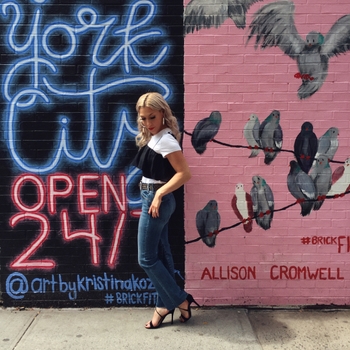 York
City
OPEN
24/
@artbykristinako
#BRICKFIT
#BRICKFI
ALLISON CROMWELL